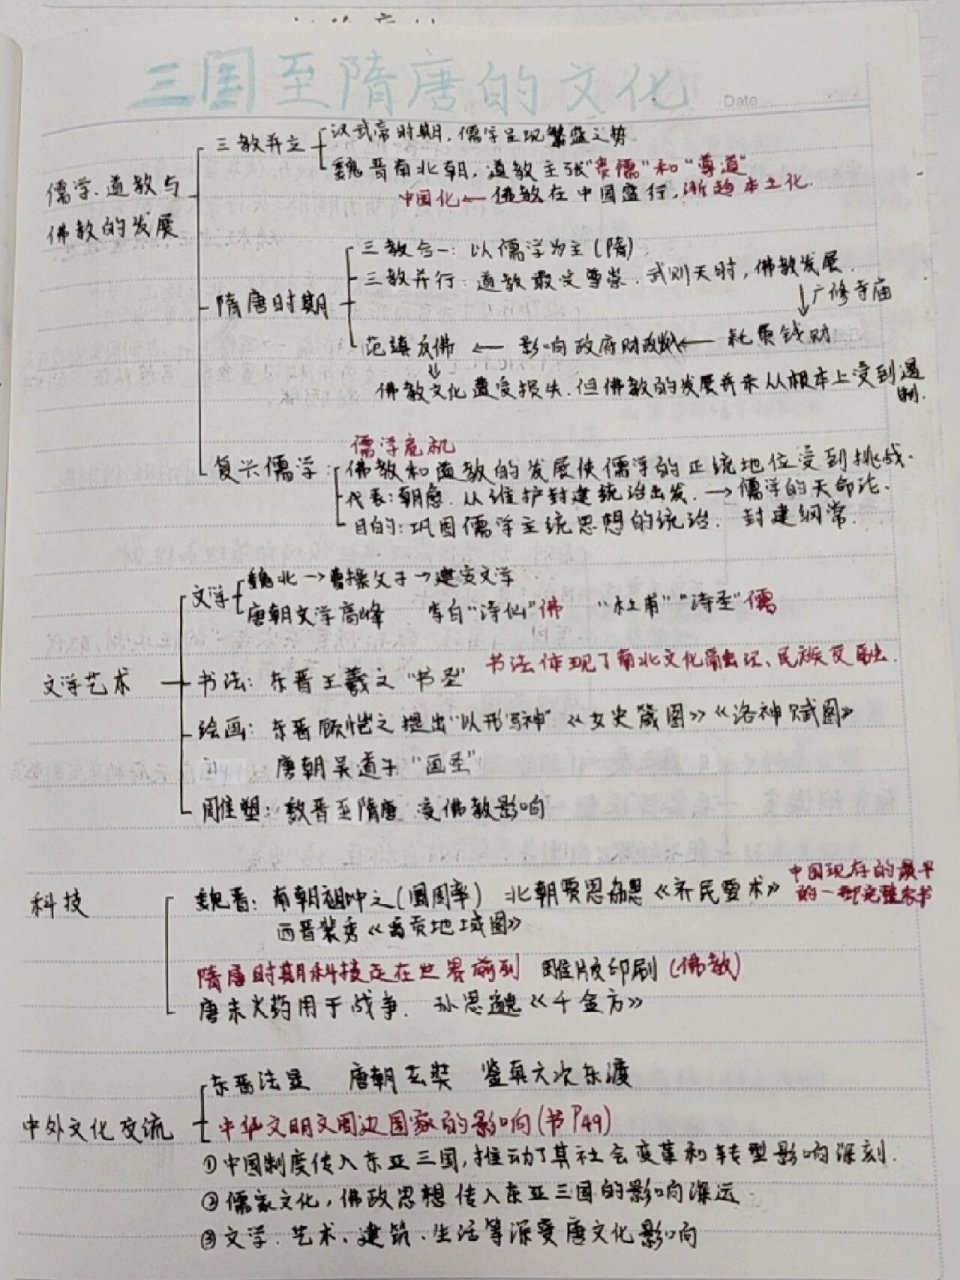 三国至隋唐的文化
Date
三教并立
汉武帝时期，儒学呈现繁盛之势
魏晋南北朝，道教主张"贵儒"和"尊道"
中国化← 佛教在中国盛行，渐趋本土化
儒学、道教与
佛教的发展
三教合一：以儒学为主(隋)
三教并行：道教最受尊崇．武则天时，佛教发展．
隋唐时期
广修寺庙
范缜反佛 ← 影响政府财政 ← 耗费钱财
佛教文化遭受损失．但佛教的发展并未从根本上受到遏
制．
儒学危机
复兴儒学：佛教和道教的发展使儒学的正统地位受到挑战．
代表：朝愈．从维护封建统治出发．→儒学的天命论．
目的：巩固儒学主流思想的统治． 封建纲常．
文学 魏北→曹操父子→建安文学
唐朝文学高峰 李白"诗仙"佛 "杜甫""诗圣"儒
文学艺术
书法：东晋王羲之"书圣" 书法体现了南北文化融汇、民族交融．
绘画：东晋顾恺之提出"以形写神"《女史箴图》《洛神赋图》
唐朝吴道子"画圣"
雕塑：魏晋至隋唐 受佛教影响
科技
魏晋：南朝祖冲之(圆周率) 北朝贾思勰《齐民要术》中国现存的最早
的一部完整农书
西晋裴秀《禹贡地域图》
隋唐时期科技走在世界前列 雕版印刷(佛教)
唐末火药用于战争． 孙思邈《千金方》
东晋法显 唐朝玄奘 鉴真六次东渡
中外文化交流 中华文明文周边国家的影响(书P49)
①中国制度传入东亚三国，推动了其社会变革和转型影响深刻．
②儒家文化，佛政思想传入东亚三国的影响深远
③文学．艺术、建筑．生活等深受唐文化影响